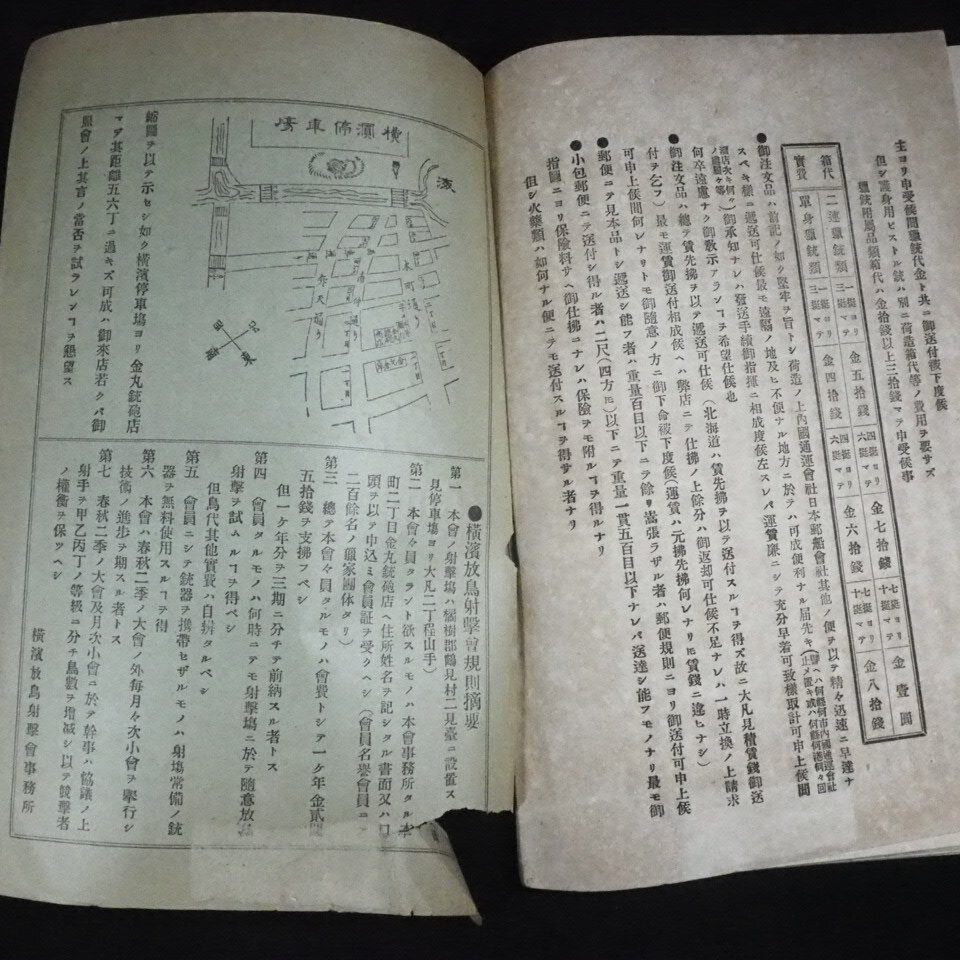 主ヨリ申受候間獵銃代金ト共ニ御送付被下度候
但シ護身用ピストル銃ハ別ニ荷造箱代等ノ費用ヲ要サズ
獵銃附屬品類箱代ハ金拾錢以上三拾錢マテ申受候事
箱代
實費
二連獵銃類 一挺ヨリ三挺マテ 金五拾錢 四挺ヨリ六挺マテ 金七拾錢 七挺ヨリ十挺マテ 金壹圓
單身獵銃類 一挺ヨリ三挺マテ 金四拾錢 四挺ヨリ六挺マテ 金六拾錢 七挺ヨリ十挺マテ 金八拾錢
●御注文品ハ前記ノ如ク堅牢ヲ旨トシ荷造ノ上內國通運會社日本郵船會社其他ノ便ヲ以テ精々迅速ニ早達ナ
スベキ樣ニ遞送可仕候最モ遠隔ノ地及ヒ不便ナル地方ニ於テハ可成便利ナル屆先キ
御承知ナレハ發送手續御指揮ニ相成度候左スレバ運賃廉ニシテ充分早着可致樣取計可申上候間
何卒遠慮ナク御敎示アランヿヲ希望仕候也
●御注文品ハ總テ賃先拂ヲ以テ遞送可仕候(北海道ハ賃先拂ヲ以テ送付スルヿヲ得ズ故ニ大凡見積賃錢御送
付ヲ乞フ)最モ運賃御送付相成候ヘハ弊店ニテ仕拂ノ上餘分ハ御返却可仕候不足ナレハ一時立換ノ上請求
可申上候間何レナリトモ御隨意ノ方ニ御下命被下度候(運賃ハ元拂先拂何レナリ𪜈賃錢ニ違ヒナシ)
●郵便ニテ見本品トシ遞送シ能フ者ハ重量百目以下ニテ餘リ嵩張ラザル者ハ郵便規則ニヨリ御送付可申上候
●小包郵便ニテ送付シ得ル者ハ二尺(四方𪜈)以下ニテ重量一貫五百目以下ナレバ送達シ能フモノナリ最モ御
指圖ニヨリ保險料サヘ御仕拂ニナレハ保險ヲモ附ルヿヲ得ルナリ
但シ火藥類ハ如何ナル便ニテモ送付スルヿヲ得サル者ナリ
橫濱停車塲
波
本町通り
弁天通り
北
東
繪圖ヲ以テ示セシ如ク橫濱停車塲ヨリ金丸銃砲店
マデ其距離五六丁ニ過キズ可成ハ御來店若クバ御
照會ノ上其言ノ當否ヲ試ランヿヲ懇望ス
●橫濱放鳥射擊會規則摘要
第一 本會ノ射擊塲ハ橘樹郡鶴見村二見臺ニ設置ス
見停車塲ヨリ大凡二丁程山手)
第二 本會々員タラント欲スルモノハ本會事務所タル本
町二丁目金丸銃砲店ヘ住所姓名ヲ記シタル書面又ハ口
頭ヲ以テ申込ミ會員証ヲ受クヘシ(會員名譽會員ニテ
二百餘名ノ獵家團体タリ)
第三 總テ本會々員タルモノハ會費トシテ一ケ年金貳圓
五拾錢ヲ支拂フベシ
但一ケ年分ヲ三期ニ分チテ前納スル者トス
第四 會員タルモノハ何時ニテモ射擊塲ニ於テ隨意放鳥
射擊ヲ試ムルヿヲ得ベシ
但鳥代其他實費ハ自辨タルベシ
第五 會員ニシテ銃器ヲ携帶セザルモノハ射塲常備ノ銃
器ヲ無料使用スルヿヲ得
第六 本會ハ春秋二季ノ大會ノ外每月々次小會ヲ擧行シ
技術ノ進步ヲ期スル者トス
第七 春秋二季ノ大會及月次小會ニ於テ幹事ハ協議ノ上
射手ヲ甲乙丙丁ノ等級ニ分チ鳥數ヲ增減シ以テ競擊者
ノ權衡ヲ保ツヘシ
橫濱放鳥射擊會事務所